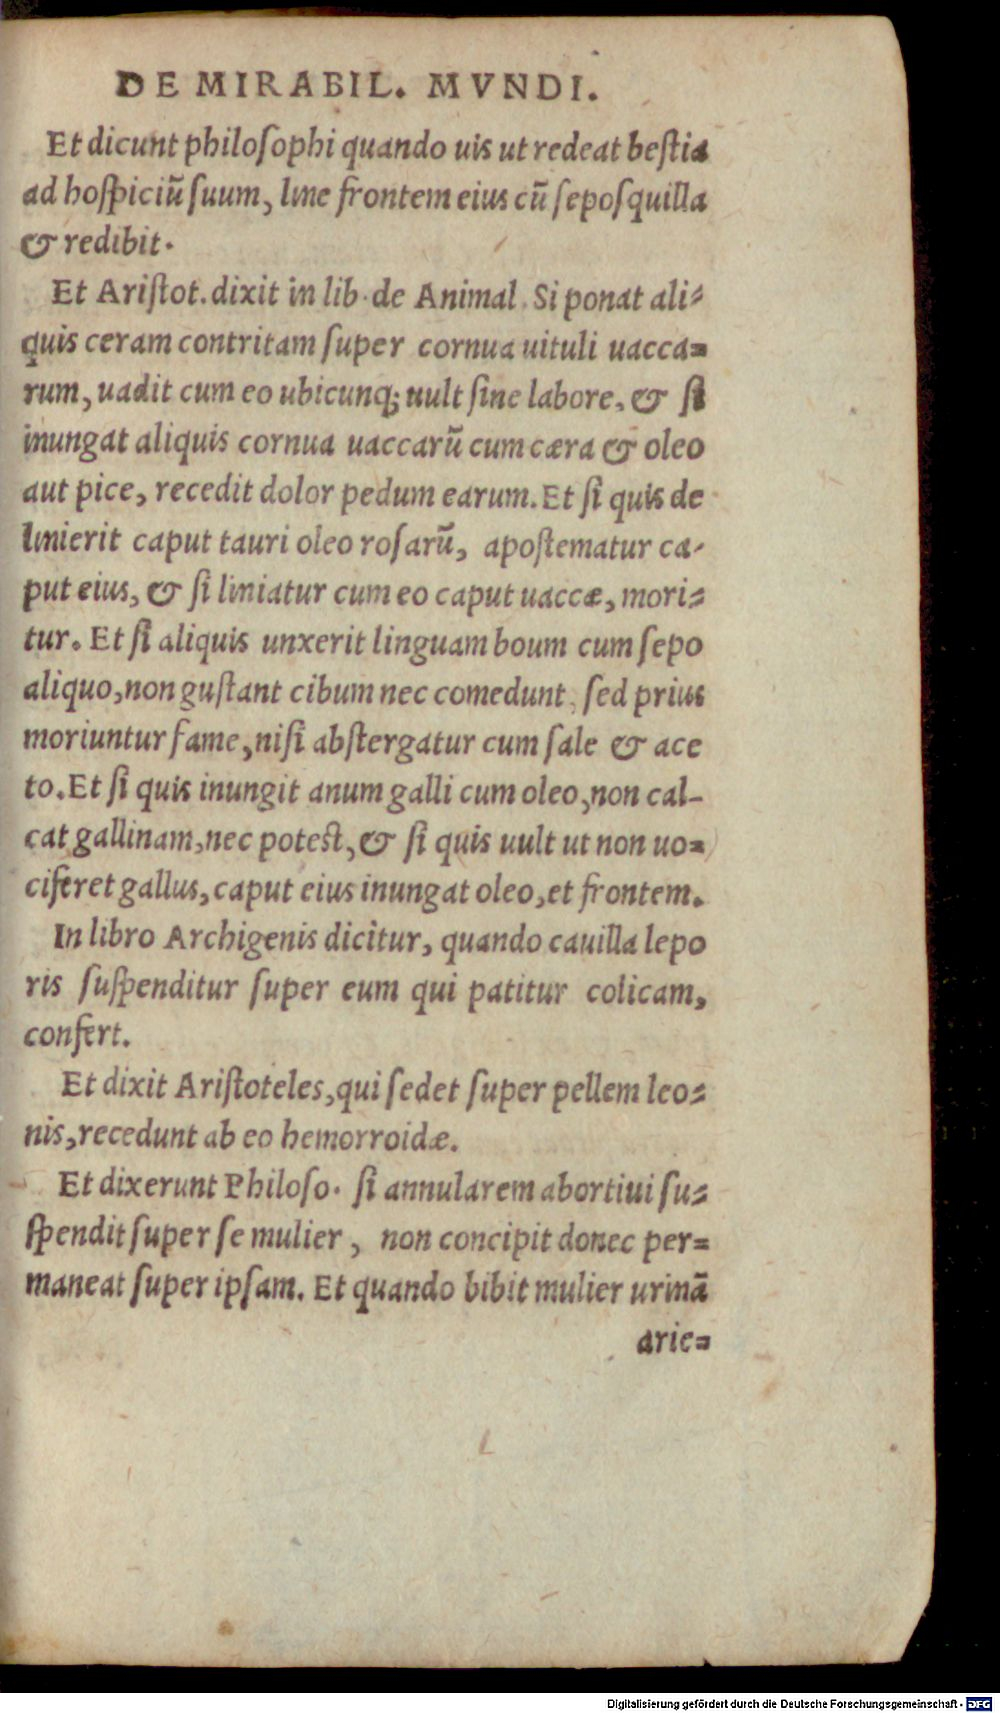 DE MIRABIL. MVNDI.
Et dicunt philosophi quando uis ut redeat bestia
ad hospiciū suum, line frontem eius cū sepo squilla
& redibit.
Et Aristot. dixit in lib. de Animal. Si ponat ali-
quis ceram contritam super cornua uituli uacca=
rum, uadit cum eo ubicunq; uult sine labore, & si
inungat aliquis cornua uaccarū cum cæra & oleo
aut pice, recedit dolor pedum earum. Et si quis de
linierit caput tauri oleo rosarū, apostematur ca-
put eius, & si liniatur cum eo caput uaccæ, mori-
tur. Et si aliquis unxerit linguam boum cum sepo
aliquo, non gustant cibum nec comedunt, sed prius
moriuntur fame, nisi abstergatur cum sale & ace
to. Et si quis inungit anum galli cum oleo, non cal-
cat gallinam, nec potest, & si quis uult ut non uo=
ciferet gallus, caput eius inungat oleo, et frontem.
In libro Archigenis dicitur, quando cauilla lepo
ris suspenditur super eum qui patitur colicam,
confert.
Et dixit Aristoteles, qui sedet super pellem leo-
nis, recedunt ab eo hemorroidæ.
Et dixerunt Philoso. si annularem abortiui su-
spendit super se mulier, non concipit donec per=
maneat super ipsam. Et quando bibit mulier urinā
arie=
Digitalisierung gefördert durch die Deutsche Forschungsgemeinschaft - DFG